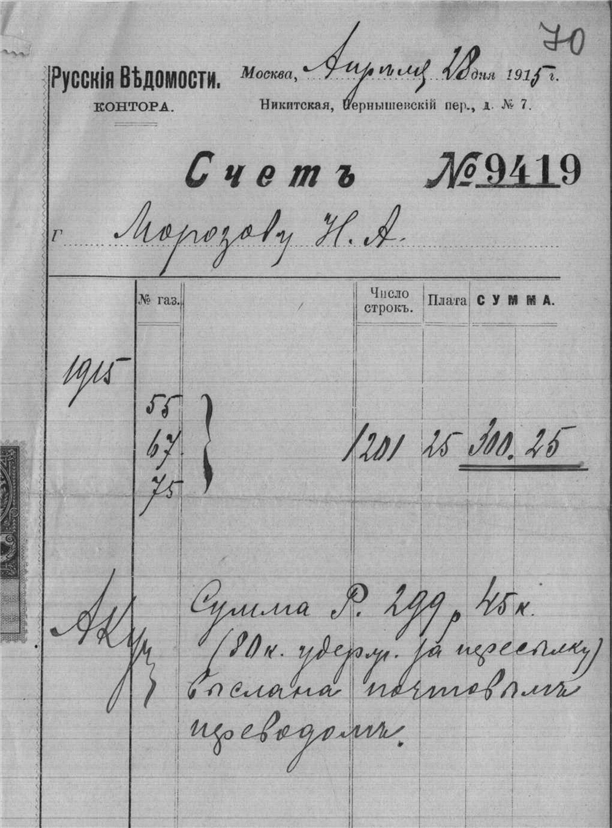 70
Русскія Вѣдомости.
КОНТОРА.
Москва, Апрѣля 28 дня 1915 г.
Никитская, Чернышевскій пер., д. № 7.
Счетъ № 9419
Г Морозову Н. А.
№ газ. Число строкъ. Плата СУММА.
1915
55
67 1201 25 300. 25
75
Сумма Р. 299, 45 к.
(80 к. удерж. за пересылку)
выслана почтовымъ
переводомъ.